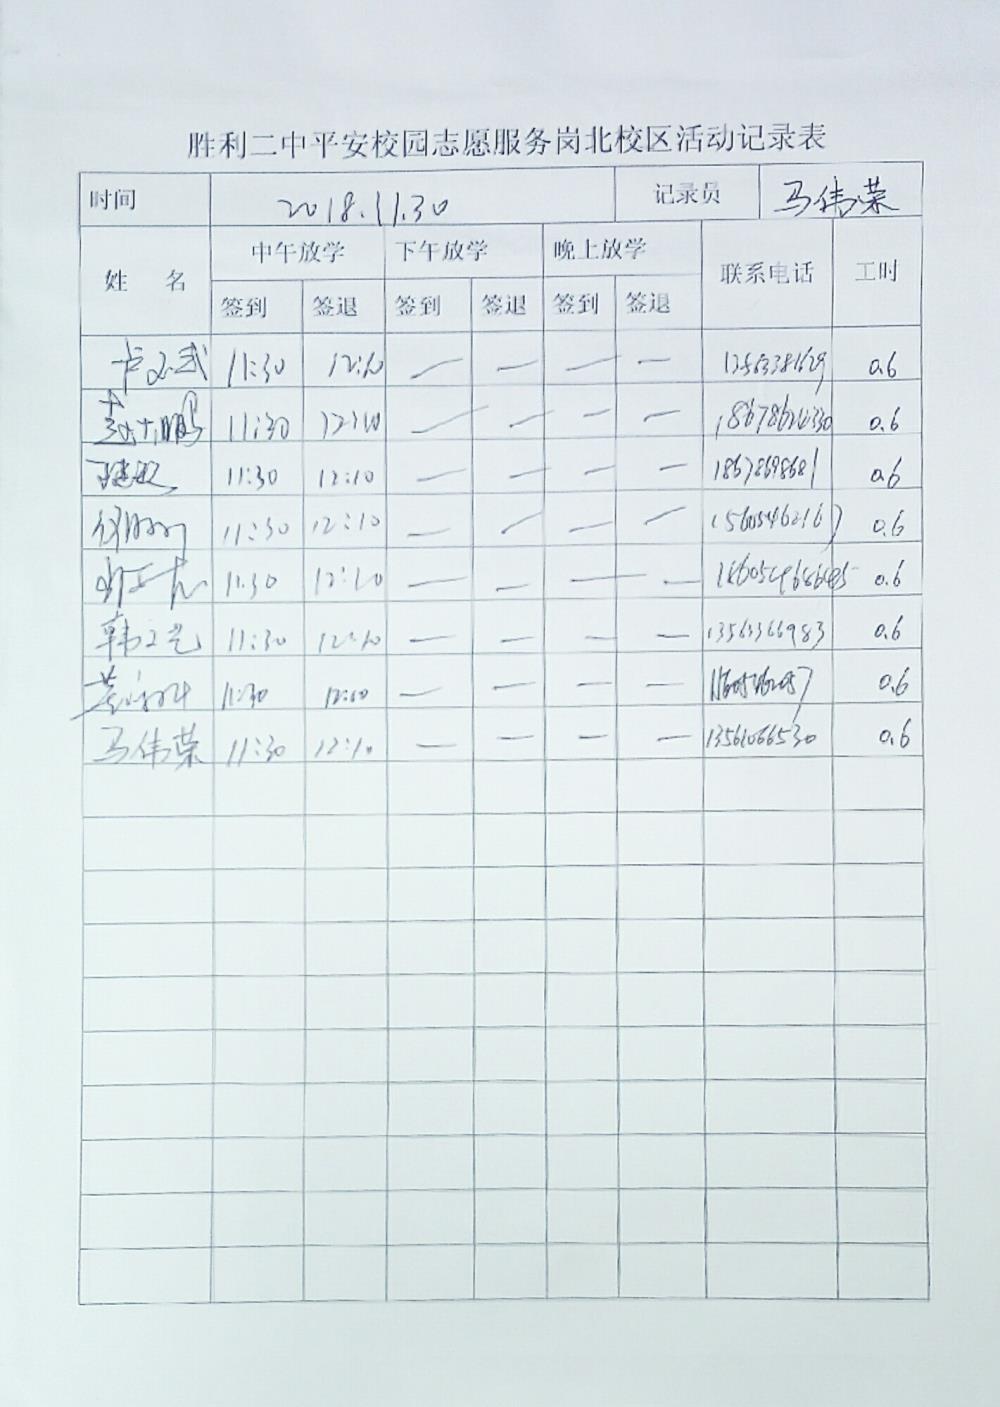 胜利二中平安校园志愿服务岗北校区活动记录表
时间 2018.11.30 记录员 马伟荣
姓 名 中午放学 下午放学 晚上放学 联系电话 工时
签到 签退 签到 签退 签到 签退
11:30 12:10 — — — — 13563381629 0.6
11:30 12:10 — — — — 0.6
11:30 12:10 — — — — 18678698681 0.6
11:30 12:10 — — — — 15605462167 0.6
11:30 12:10 — — — — 0.6
韩文艺 11:30 12:10 — — — — 13563366983 0.6
11:30 12:10 — — — — 0.6
马伟荣 11:30 12:10 — — — — 13561066530 0.6